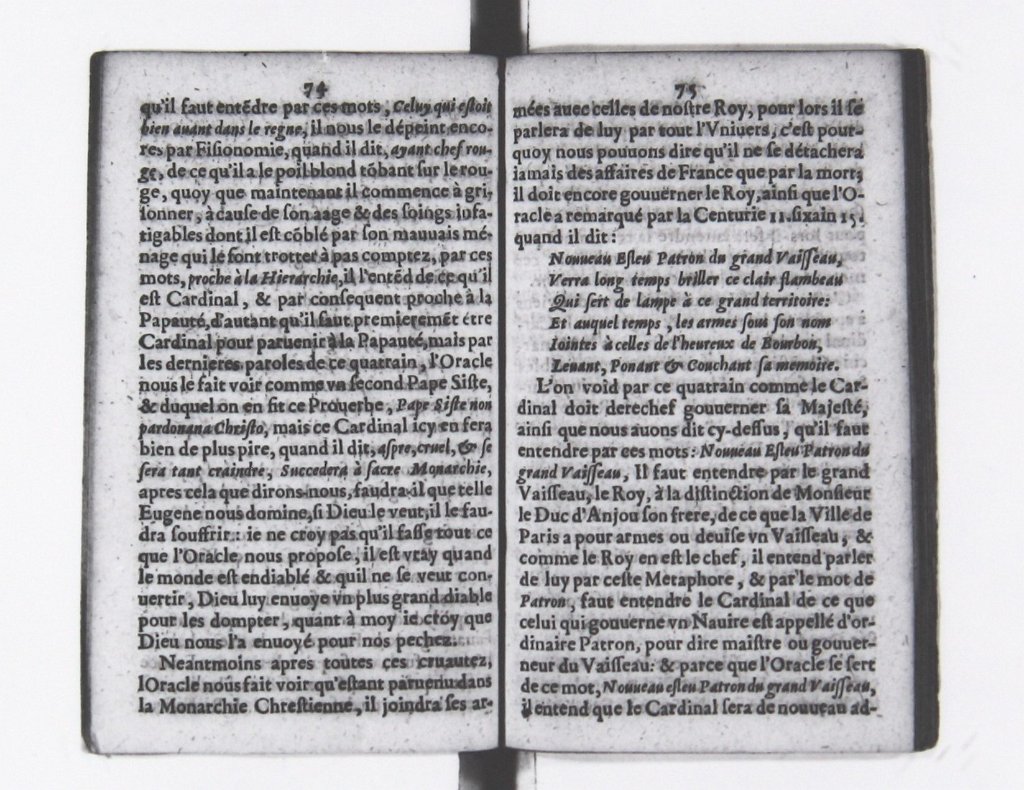 74
qu'il faut entẽdre par ces mots, Celuy qui estoit
bien auant dans le regne, il nous le dépeint enco-
res par Fisionomie, quand il dit, ayant chef rou-
ge, de ce qu'il a le poil blond tõbant sur le rou-
ge, quoy que maintenant il commence à gri-
sonner, à cause de son aage & des soings infa-
tigables dont il est cõblé par son mauuais mé-
nage qui le font trotter à pas comptez, par ces
mots, proche à la Hierarchie, il l'entẽd de ce qu'il
est Cardinal, & par consequent proche à la
Papauté, d'autant qu'il faut premieremẽt étre
Cardinal pour paruenir à la Papauté, mais par
les dernieres paroles de ce quatrain, l'Oracle
nous le fait voir comme vn second Pape Siste,
& duquel on en fit ce Prouerbe, Pape Siste non
pardonana Christo, mais ce Cardinal icy en fera
bien de plus pire, quand il dit, aspre, cruel, & se
fera tant craindre, Succedera à sacre Monarchie,
apres cela que dirons-nous, faudra-il que telle
Eugene nous domine, si Dieu le veut, il le fau-
dra souffrir: ie ne croy pas qu'il fasse tout ce
que l'Oracle nous propose, il est vray quand
le monde est endiablé & quil ne se veut con-
uertir, Dieu luy enuoye vn plus grand diable
pour les dompter, quant à moy ie croy que
Dieu nous l'a enuoyé pour nos pechez.
Neantmoins apres toutes ces cruautez,
lOracle nous fait voir qu'estant paruenu dans
la Monarchie Chrestienne, il joindra ses ar-
75
mées auec celles de nostre Roy, pour lors il se
parlera de luy par tout l'Vniuers, c'est pour-
quoy nous pouuons dire qu'il ne se détachera
iamais des affaires de France que par la mort;
il doit encore gouuerner le Roy, ainsi que l'O-
racle a remarqué par la Centurie 11. sixain 15.
quand il dit:
Nouueau Esleu Patron du grand Vaisseau,
Verra long temps briller ce clair flambeau
Qui sert de lampe à ce grand territoire:
Et auquel temps, les armes sous son nom
Iointes à celles de l'heureux de Bourbon,
Leuant, Ponant & Couchant sa memoire.
L'on void par ce quatrain comme le Car-
dinal doit derechef gouuerner sa Majesté,
ainsi que nous auons dit cy-dessus, qu'il faut
entendre par ces mots: Nouueau Esleu Patron du
grand Vaisseau, Il faut entendre par le grand
Vaisseau, le Roy, à la distinction de Monsieur
le Duc d'Anjou son frere, de ce que la Ville de
Paris a pour armes ou deuise vn Vaisseau, &
comme le Roy en est le chef, il entend parler
de luy par ceste Metaphore, & par le mot de
Patron, faut entendre le Cardinal de ce que
celui qui gouuerne vn Nauire est appellé d'or-
dinaire Patron, pour dire maistre ou gouuer-
neur du Vaisseau: & parce que l'Oracle se sert
de ce mot, Nouueau esleu Patron du grand Vaisseau,
il entend que le Cardinal sera de nouueau ad-